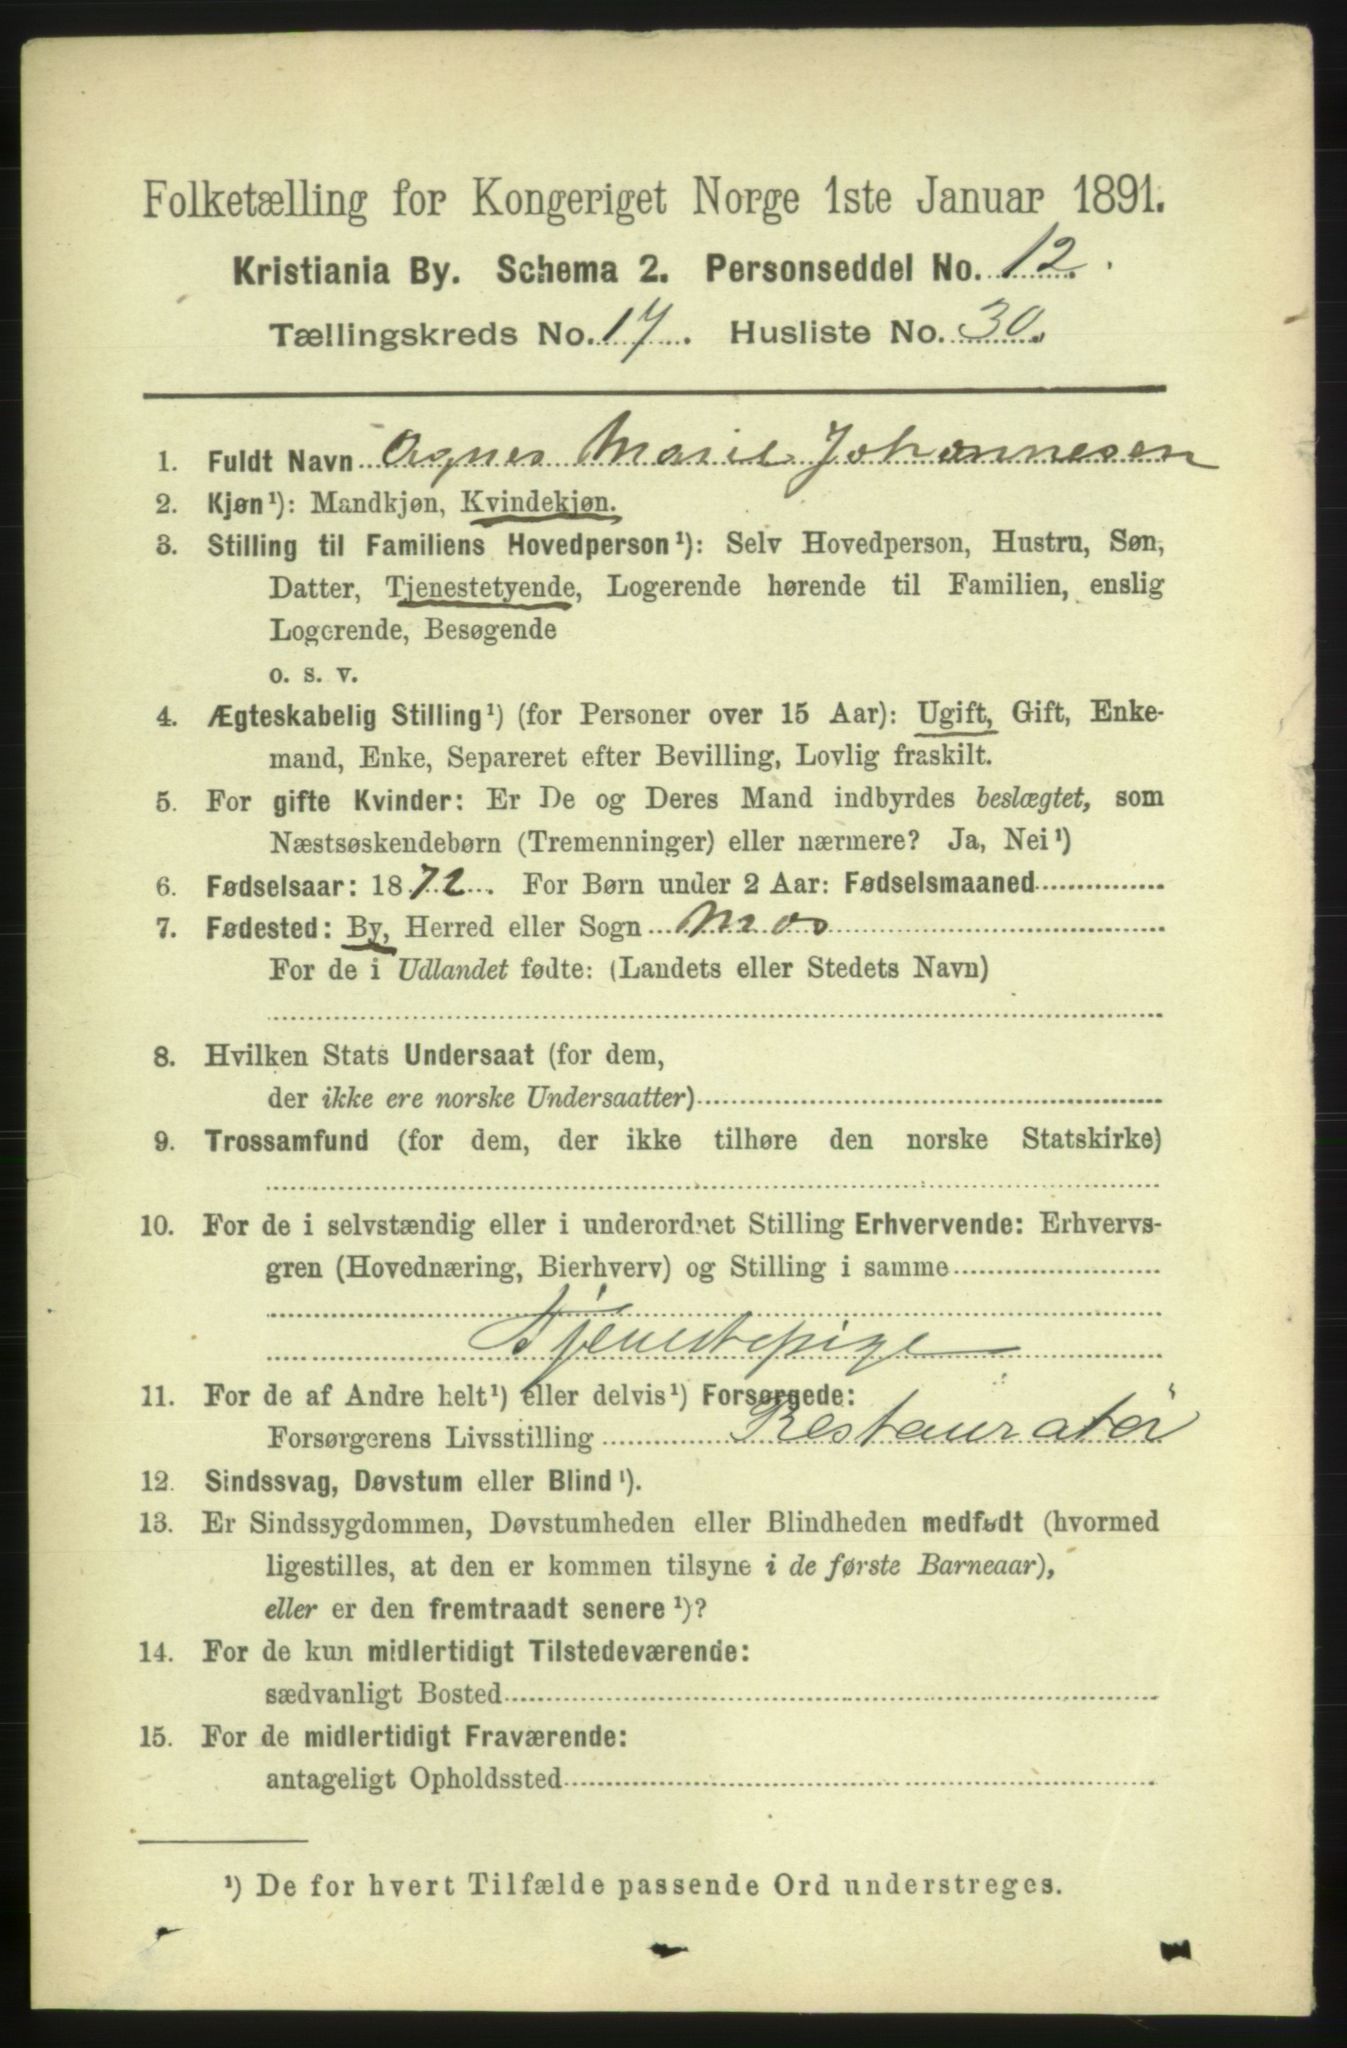 Folketælling for Kongeriget Norge 1ste Januar 1891.
Kristiania By. Schema 2. Personseddel No. 12.
Tællingskreds No. 17. Husliste No. 30.
1. Fuldt Navn Agnes Marie Johannesen
2. Kjøn¹): Mandkjøn, Kvindekjøn.
3. Stilling til Familiens Hovedperson¹): Selv Hovedperson, Hustru, Søn,
Datter, Tjenestetyende, Logerende hørende til Familien, enslig
Logerende, Besøgende
o. s. v.
4. Ægteskabelig Stilling¹) (for Personer over 15 Aar): Ugift, Gift, Enke-
mand, Enke, Separeret efter Bevilling, Lovlig fraskilt.
5. For gifte Kvinder: Er De og Deres Mand indbyrdes beslægtet, som
Næstsøskendebørn (Tremenninger) eller nærmere? Ja, Nei¹)
6. Fødselsaar: 1872. For Børn under 2 Aar: Fødselsmaaned
7. Fødested: By, Herred eller Sogn Mos
For de i Udlandet fødte: (Landets eller Stedets Navn)
8. Hvilken Stats Undersaat (for dem,
der ikke ere norske Undersaatter)
9. Trossamfund (for dem, der ikke tilhøre den norske Statskirke)
10. For de i selvstændig eller i underordnet Stilling Erhvervende: Erhvervs-
gren (Hovednæring, Bierhverv) og Stilling i samme
Tjenestepige
11. For de af Andre helt¹) eller delvis¹) Forsørgede:
Forsørgerens Livsstilling "Restauratør"
12. Sindssvag, Døvstum eller Blind¹).
13. Er Sindssygdommen, Døvstumheden eller Blindheden medfødt (hvormed
ligestilles, at den er kommen tilsyne i de første Barneaar),
eller er den fremtraadt senere¹)?
14. For de kun midlertidigt Tilstedeværende:
sædvanligt Bosted
15. For de midlertidigt Fraværende:
antageligt Opholdssted
¹) De for hvert Tilfælde passende Ord understreges.